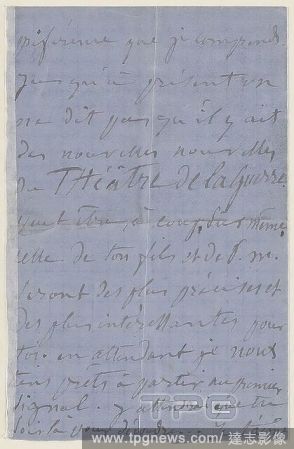 préférence que je comprends.
jusqu'à présent on
ne dit pas qu'il y ait
des nouvelles nouvelles
du Théâtre de la guerre.
Peut être, à coup sûr même
celle de ton fils et de P. m.
seront des plus précises et
des plus intéressantes pour
toi. en attendant je nous
tiens prêts à partir au premier
signal. j'attends
TPG
www.tpgnews.com / 達志影像